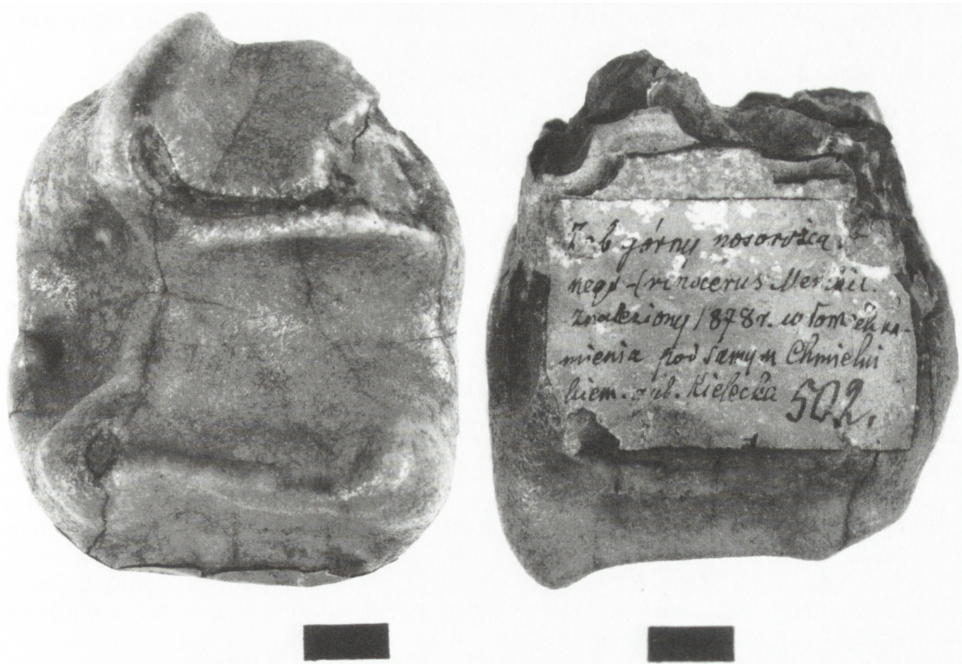 Ząb górny nosorożca
nego (rinocerus Merkii.
Znaleziony 1878 r. w łomach ka-
mienia pod samym Chmielni
kiem. gub. Kielecka 502.